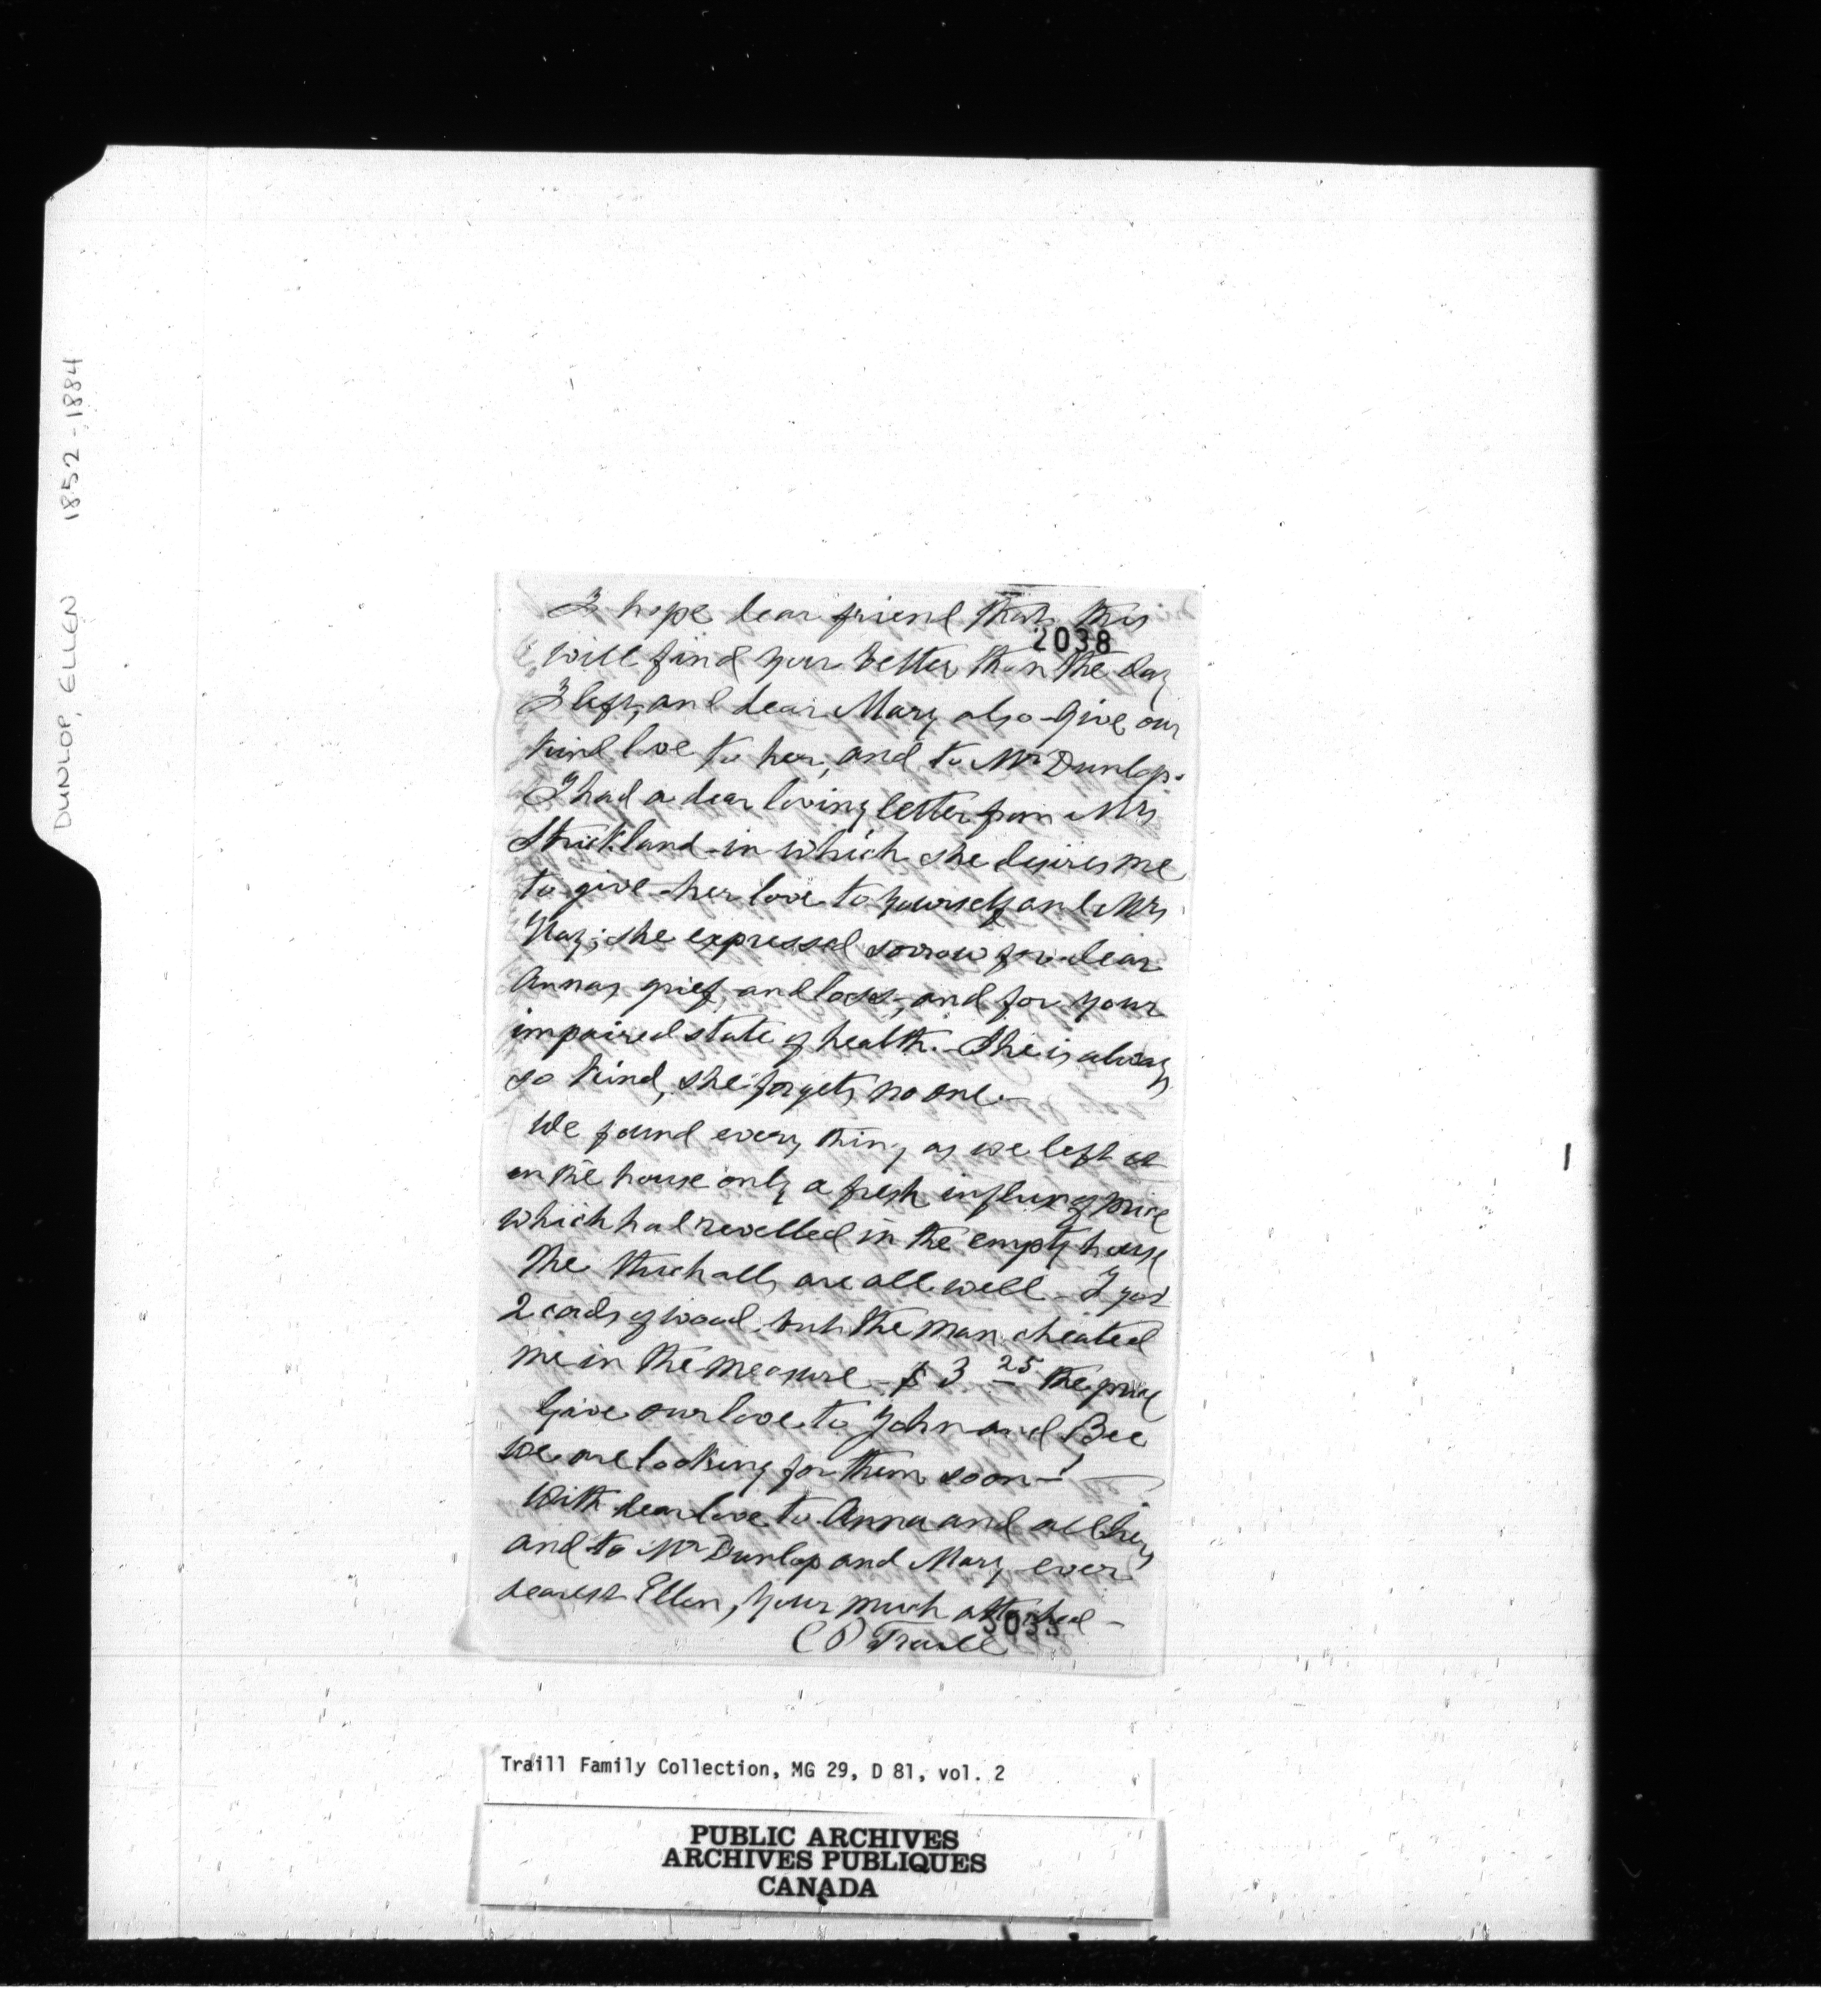 DUNLOP, ELLEN 1852-1884
I hope dear friend that this
2038
will find your better than the day
I left, and dear Mary also - Give our
kind love to her, and to Mr Dunlop.
I had a dear loving letter from Mrs
Strickland - in which she desires me
to give her love to yourself and Mrs
she expressed sorrow for dear
Annas grief and loss, and for your
impaired state of health. - She is always
so kind, she forgets no one. -
We found every thing as we left it
in the house only a fresh influx of mice
which had revelled in the empty house
The are all well - I got
2 cords of wood, but the man cheated
me in the measure - $ 3 25 the price
Give our love to John and Bee
We are looking for them soon -
With dear love to Anna and all hers
and to Mr Dunlop and Mary ever
dearest Ellen, your much attached -
C P Traill
Traill Family Collection, MG 29, D 81, vol. 2
PUBLIC ARCHIVES
ARCHIVES PUBLIQUES
CANADA